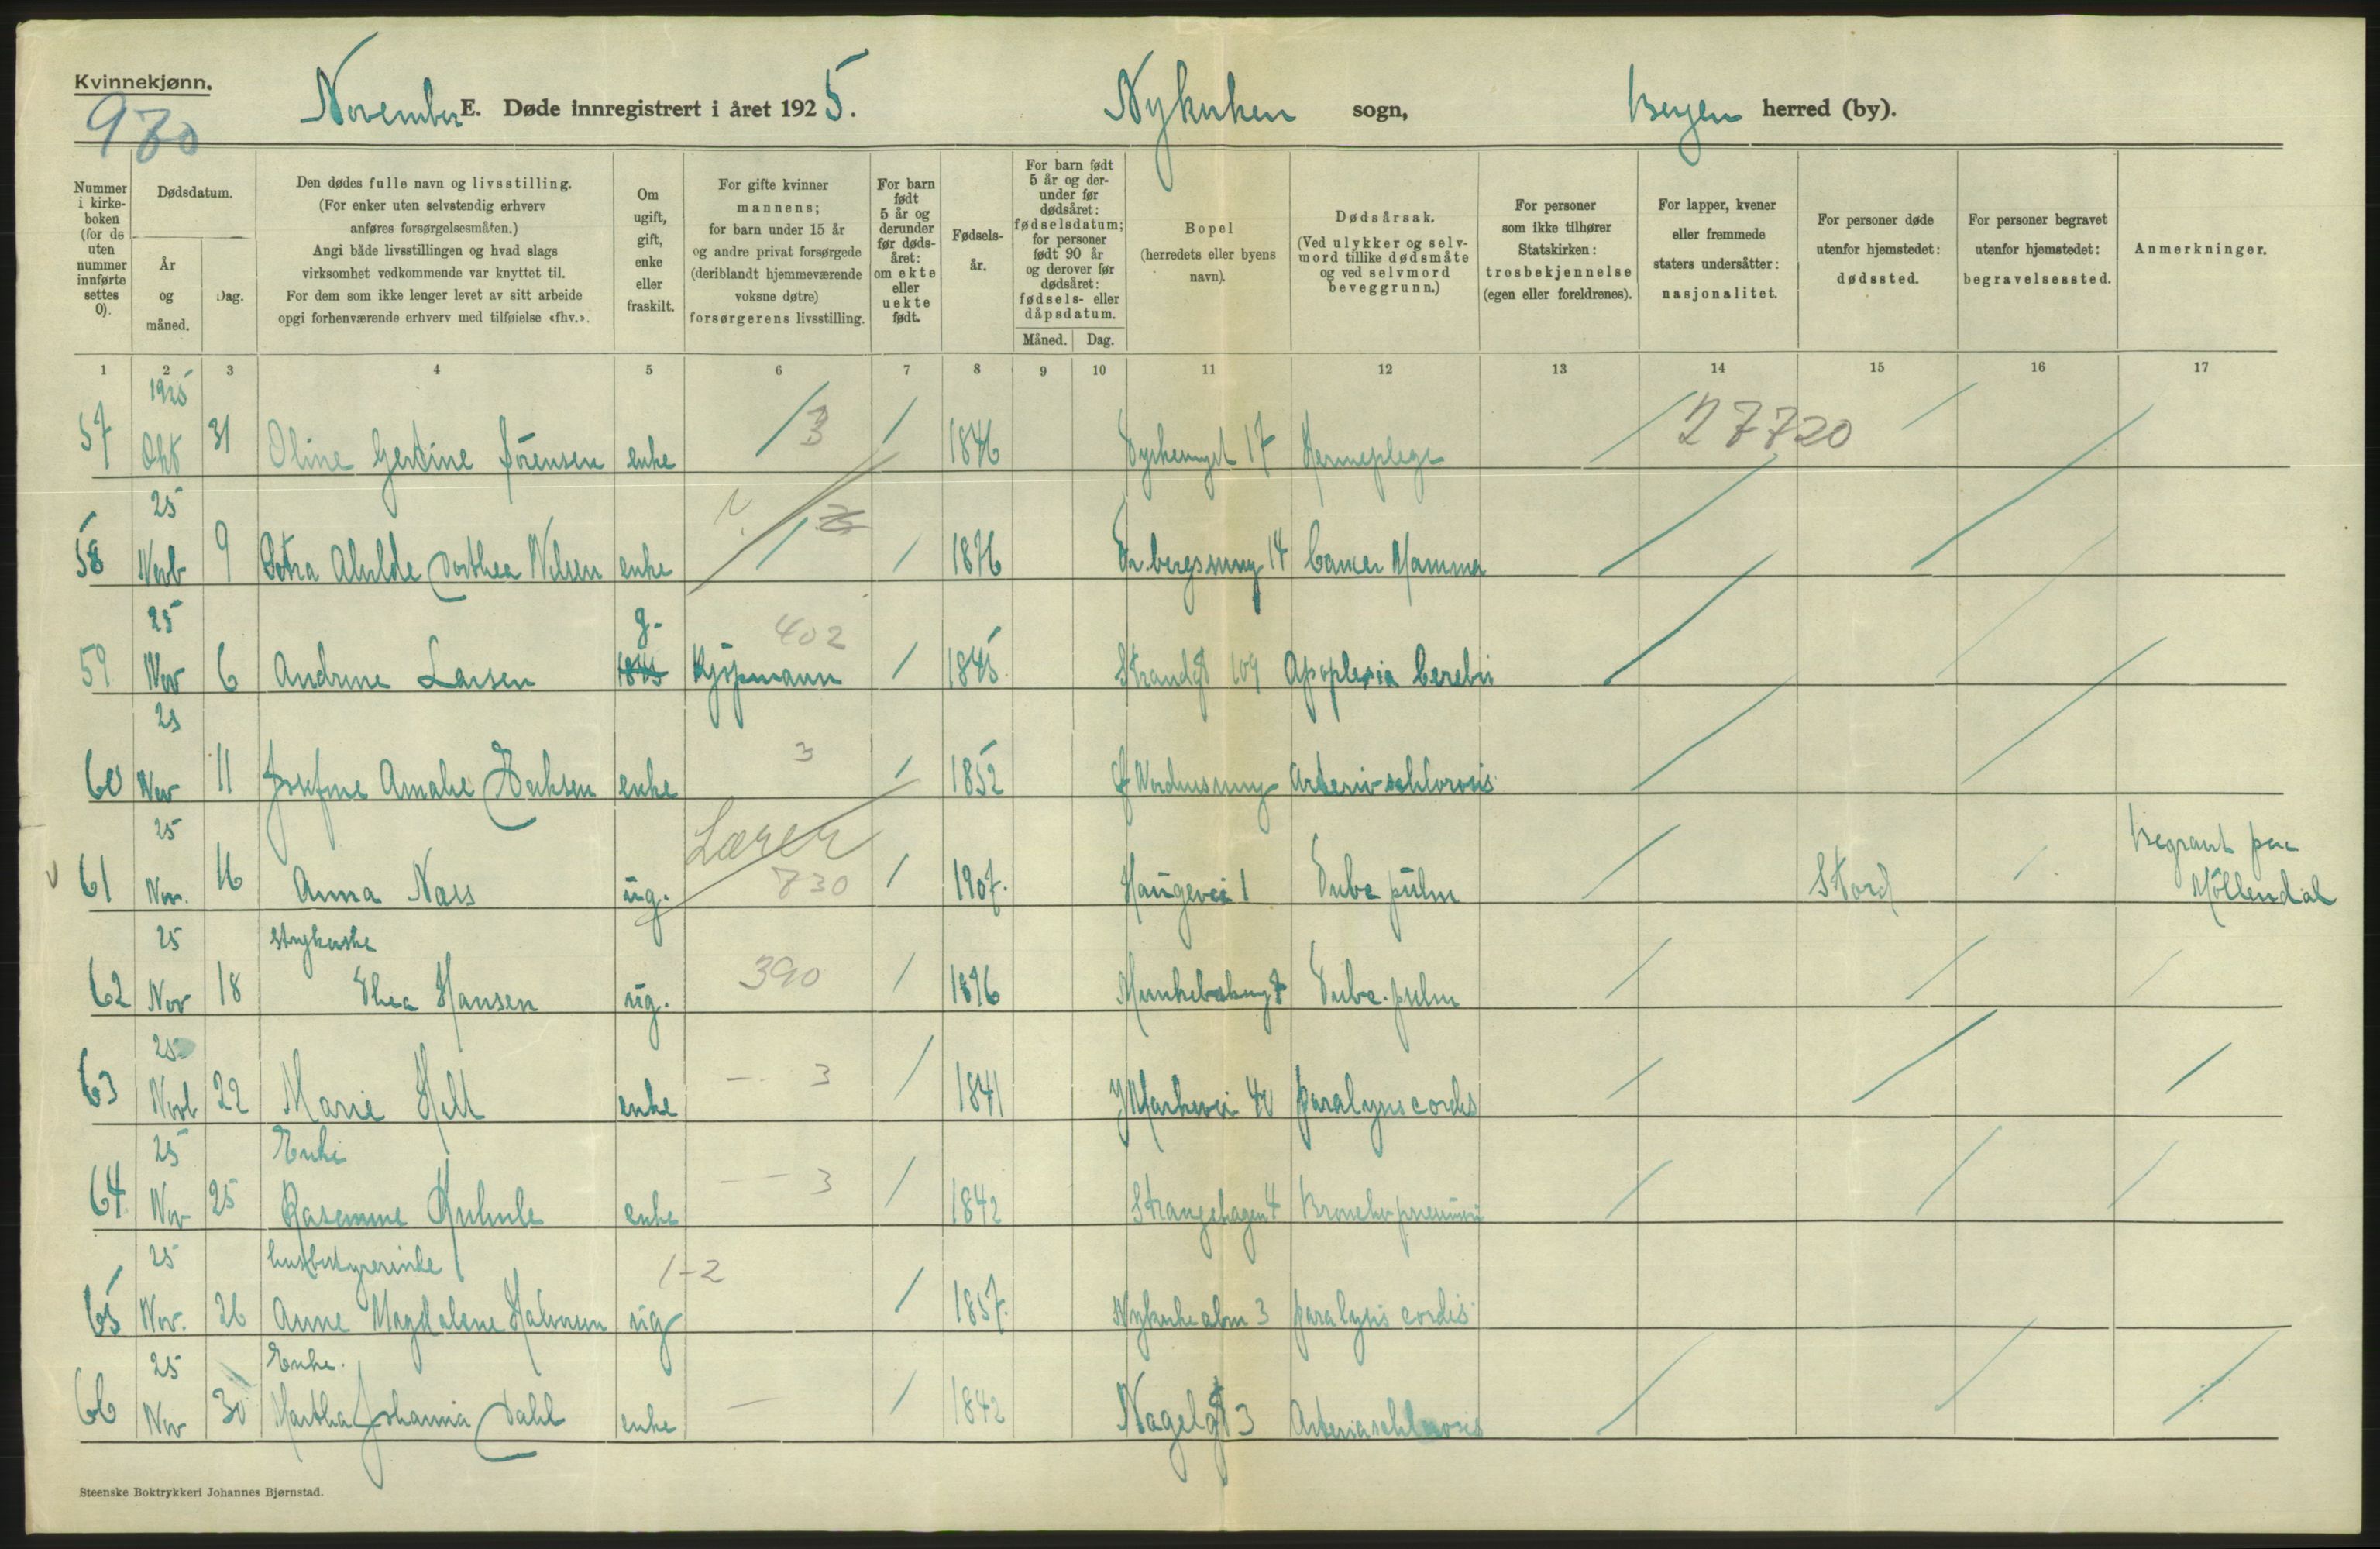 Kvinnekjønn.
970
November E. Døde innregistrert i året 1925. Nykirken sogn, Bergen herred (by).
Nummer i kirkeboken (for de uten nummer innførte settes 0).
Dødsdatum.
År og måned.
Dag.
Den dødes fulle navn og livsstilling.
(For enker uten selvstendig erhverv
anføres forsørgelsesmåten.)
Angi både livsstillingen og hvad slags
virksomhet vedkommende var knyttet til.
For dem som ikke lenger levet av sitt arbeide
opgi forhenværende erhverv med tilføielse «fhv.».
Om
ugift,
gift,
enke
eller
fraskilt.
For gifte kvinner
mannens;
for barn under 15 år
og andre privat forsørgede
(deriblandt hjemmeværende
voksne døtre)
forsørgerens livsstilling.
For barn
født
5 år og
derunder
før døds-
året:
om ekte
eller
uekte
født.
Fødsels-
år.
For barn født
5 år og der-
under før
dødsåret:
fødselsdatum;
for personer
født 90 år
og derover før
dødsåret:
fødsels- eller
dåpsdatum.
Måned. Dag.
Bopel
(herredets eller byens
navn).
Dødsårsak.
(Ved ulykker og selv-
mord tillike dødsmåte
og ved selvmord
beveggrunn.)
For personer
som ikke tilhører
Statskirken:
trosbekjennelse
(egen eller foreldrenes).
For lapper, kvener
eller fremmede
staters undersåtter:
nasjonalitet.
For personer døde
utenfor hjemstedet:
dødssted.
For personer begravet
utenfor hjemstedet:
begravelsessted.
Anmerkninger.
1 2 3 4 5 6 7 8 9 10 11 12 13 14 15 16 17
1925
57 Okt 31 Oline Gertine Sørensen enke / 3 / 1846 17 / 27720
25
58 Novb 9 Petra Alvilde Dorthea Nilsen enke / / 1876 14 Cancer Mamma
25 g. 402
59 Nov 6 Andrine Larsen 1845 Kjøpmann / 1845 Strandgt 109 Apoplexia Cerebri
25
60 Nov 11 Josefine Amalie enke 3 / 1852 Arterio-schlorosis
25 Lærer Begravet paa
61 Nov. 16 Anna Næss ug. 730 / 1907. Haugevei 1 Tube pulm / Stord Möllendal
25 Strykerske
62 Nov 18 Thea Hansen ug. 390 / 1896 Tube. pulm
25
63 Novb 22 Marie enke — 3 / 1841 Markevei 40 paralysis cordis
25 Enke
64 Nov 25 Rasmine enke — 3 / 1842 Strangehagen 4 Broncho-pneumoni
25 husbestyrerinde 1-2
65 Nov. 26 Anne Magdalene Halvorsen ug / 1857. Nykirkealm 3 paralysis cordis
25 Enke.
66 Nov 30 Martha Johanna Dahl enke — / 1842 Nagelgt 3 Arteriaschlerosis
Steenske Boktrykkeri Johannes Bjørnstad.